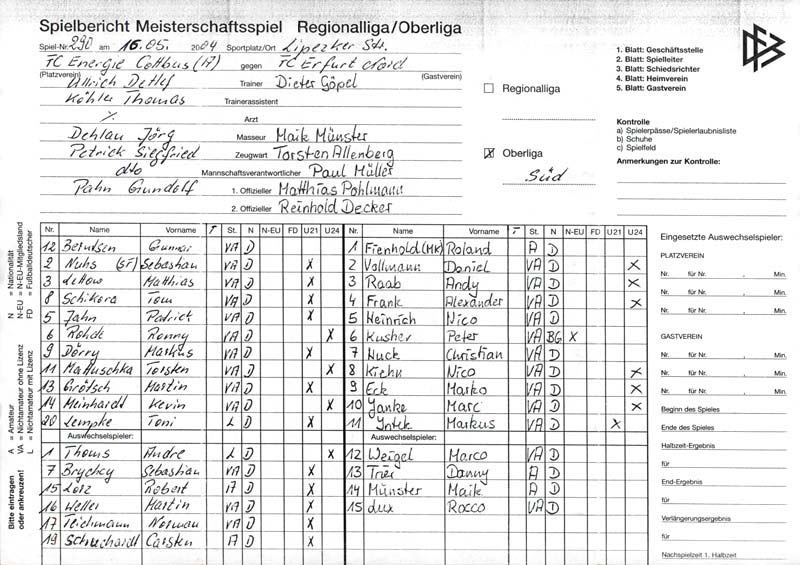 Spielbericht Meisterschaftsspiel Regionalliga/Oberliga
Spiel-Nr. 290 am 16.05. 2004 Sportplatz/Ort Lipezker Str.
FC Energie Cottbus (A) gegen FC Erfurt Nord
(Platzverein) (Gastverein)
Ullrich Detlef Trainer Dieter Göpel
Köhler Thomas Trainerassistent
%. Arzt
Dehlau Jörg Masseur Maik Münster
Petrick Siegfried Zeugwart Torsten Allenberg
dto Mannschaftsverantwortlicher Paul Müller
Pahn Gundolf 1. Offizieller Matthias Pohlmann
2. Offizieller Reinhold Decker
Regionalliga
X Oberliga
Süd
DFB
1. Blatt: Geschäftsstelle
2. Blatt: Spielleiter
3. Blatt: Schiedsrichter
4. Blatt: Heimverein
5. Blatt: Gastverein
Kontrolle
a) Spielerpässe/Spielerlaubnisliste
b) Schuhe
c) Spielfeld
Anmerkungen zur Kontrolle:
N = Nationalität
N-EU = N-EU-Mitgliedsland
FD = Fußballdeutscher
A = Amateur
VA = Nichtamateur ohne Lizenz
L = Nichtamateur mit Lizenz
Bitte eintragen oder ankreuzen!
Nr. Name Vorname T St. N N-EU FD U21 U24
12 Berntsen Gunnar VA D
2 Nuhs (ST) Sebastian VA D X
3 Lettow Matthias VA D X
8 Schikora Tom VA D X
5 Jahn Patrick VA D X
6 Rohde Ronny VA D X
9 Dörry Markus VA D X
11 Mattuschka Torsten VA D X
13 Grötsch Martin VA D X
14 Meinhardt Kevin VA D X
20 Lempke Toni L D X
Auswechselspieler:
1 Thoms Andre L D X
7 Brychcy Sebastian VA D X
15 Lorz Robert A D X
16 Weller Martin VA D X
17 Teichmann Norman VA D X
19 Schuchardt Carsten A D X
Nr. Name Vorname T St. N N-EU FD U21 U24
1 Fienhold (MK) Roland A D
2 Vollmann Daniel VA D X
3 Raab Andy VA D X
4 Frank Alexander VA D X
5 Heinrich Nico VA D
6 Kusher Peter VA BG X
7 Huck Christian VA D
8 Kiehn Nico VA D X
9 Eck Marko VA D X
10 Janke Marc VA D X
11 Intek Markus VA D X
Auswechselspieler:
12 Weigel Marco VA D
13 Trier Danny A D
14 Münster Maik A D
15 Lux Rocco VA D
Eingesetzte Auswechselspieler:
PLATZVEREIN
Nr. für Nr. , Min.
Nr. für Nr. , Min.
Nr. für Nr. , Min.
GASTVEREIN
Nr. für Nr. , Min.
Nr. für Nr. , Min.
Nr. für Nr. , Min.
Beginn des Spieles
Ende des Spieles
Halbzeit-Ergebnis
für
End-Ergebnis
für
Verlängerungsergebnis
für
Nachspielzeit 1. Halbzeit